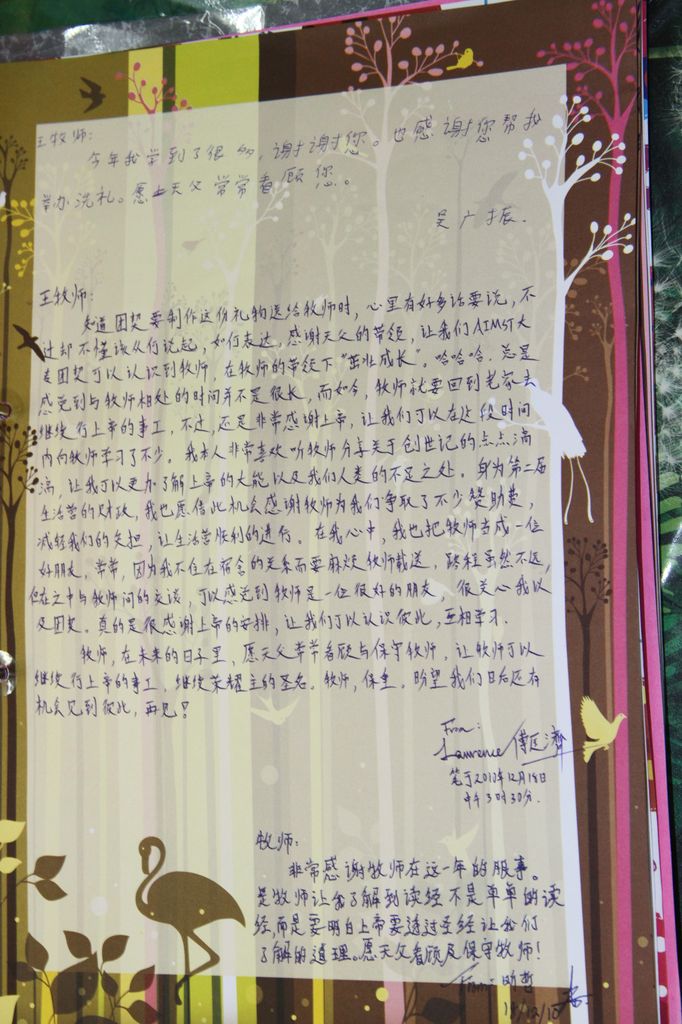 王牧师:
今年我学到了很多,谢谢您。也感谢您帮我
举办洗礼。愿上天父常常看顾您。
吴广振.
王牧师:
知道团契要制作这份礼物送给牧师时,心里有好多话要说,不
过却不懂该从何说起,如何表达,感谢天父的带领,让我们AIMST大
专团契可以认识到牧师,在牧师的带领下"茁壮成长"。哈哈哈.总是
感觉到与牧师相处的时间并不是很长,而如今,牧师就要回到老家去
继续行上帝的事工,不过,还是非常感谢上帝,让我们可以在这段时间
内向牧师学习了不少。我本人非常喜欢听牧师分享关于创世记的点点滴
滴,让我可以更加了解上帝的大能以及我们人类的不足之处。身为第二届
生活营的财政,我也愿借此机会感谢牧师为我们争取了不少赞助费,
减轻我们的负担,让生活营胜利的进行。在我心中,我也把牧师当成一位
好朋友,常常,因为我不住在宿舍的关系而要麻烦牧师载送,路程虽然不远,
但在之中与牧师间的交谈,可以感觉到牧师是一位很好的朋友,很关心我以
及团契。真的是很感谢上帝的安排,让我们可以认识彼此,互相学习.
牧师,在未来的日子里,愿天父常常看顾与保守牧师,让牧师可以
继续行上帝的事工,继续荣耀主的圣名。牧师,保重。盼望我们日后还有
机会见到彼此,再见!
From:
Lawrence 傅匡济
笔于2010年12月18日
中午3时30分.
牧师:
非常感谢牧师在这一年的服事。
是牧师让我了解到读经不是单单的读
经,而是要明白上帝要透过圣经让我们
了解的道理。愿天父看顾及保守牧师!
From: 哲
12/10